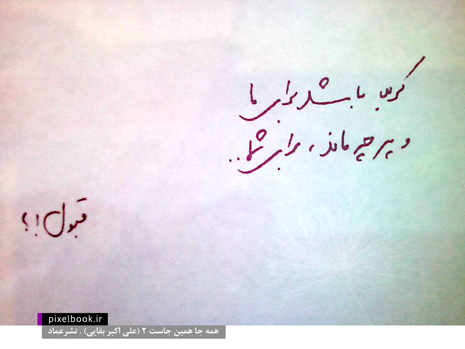 کربلا باشد برای ما
و هر چه ماند، برای شما..
قبول!؟
pixelbook.ir
همه جا همین جاست ۲ (علی اکبر بقایی) . نشرعماد